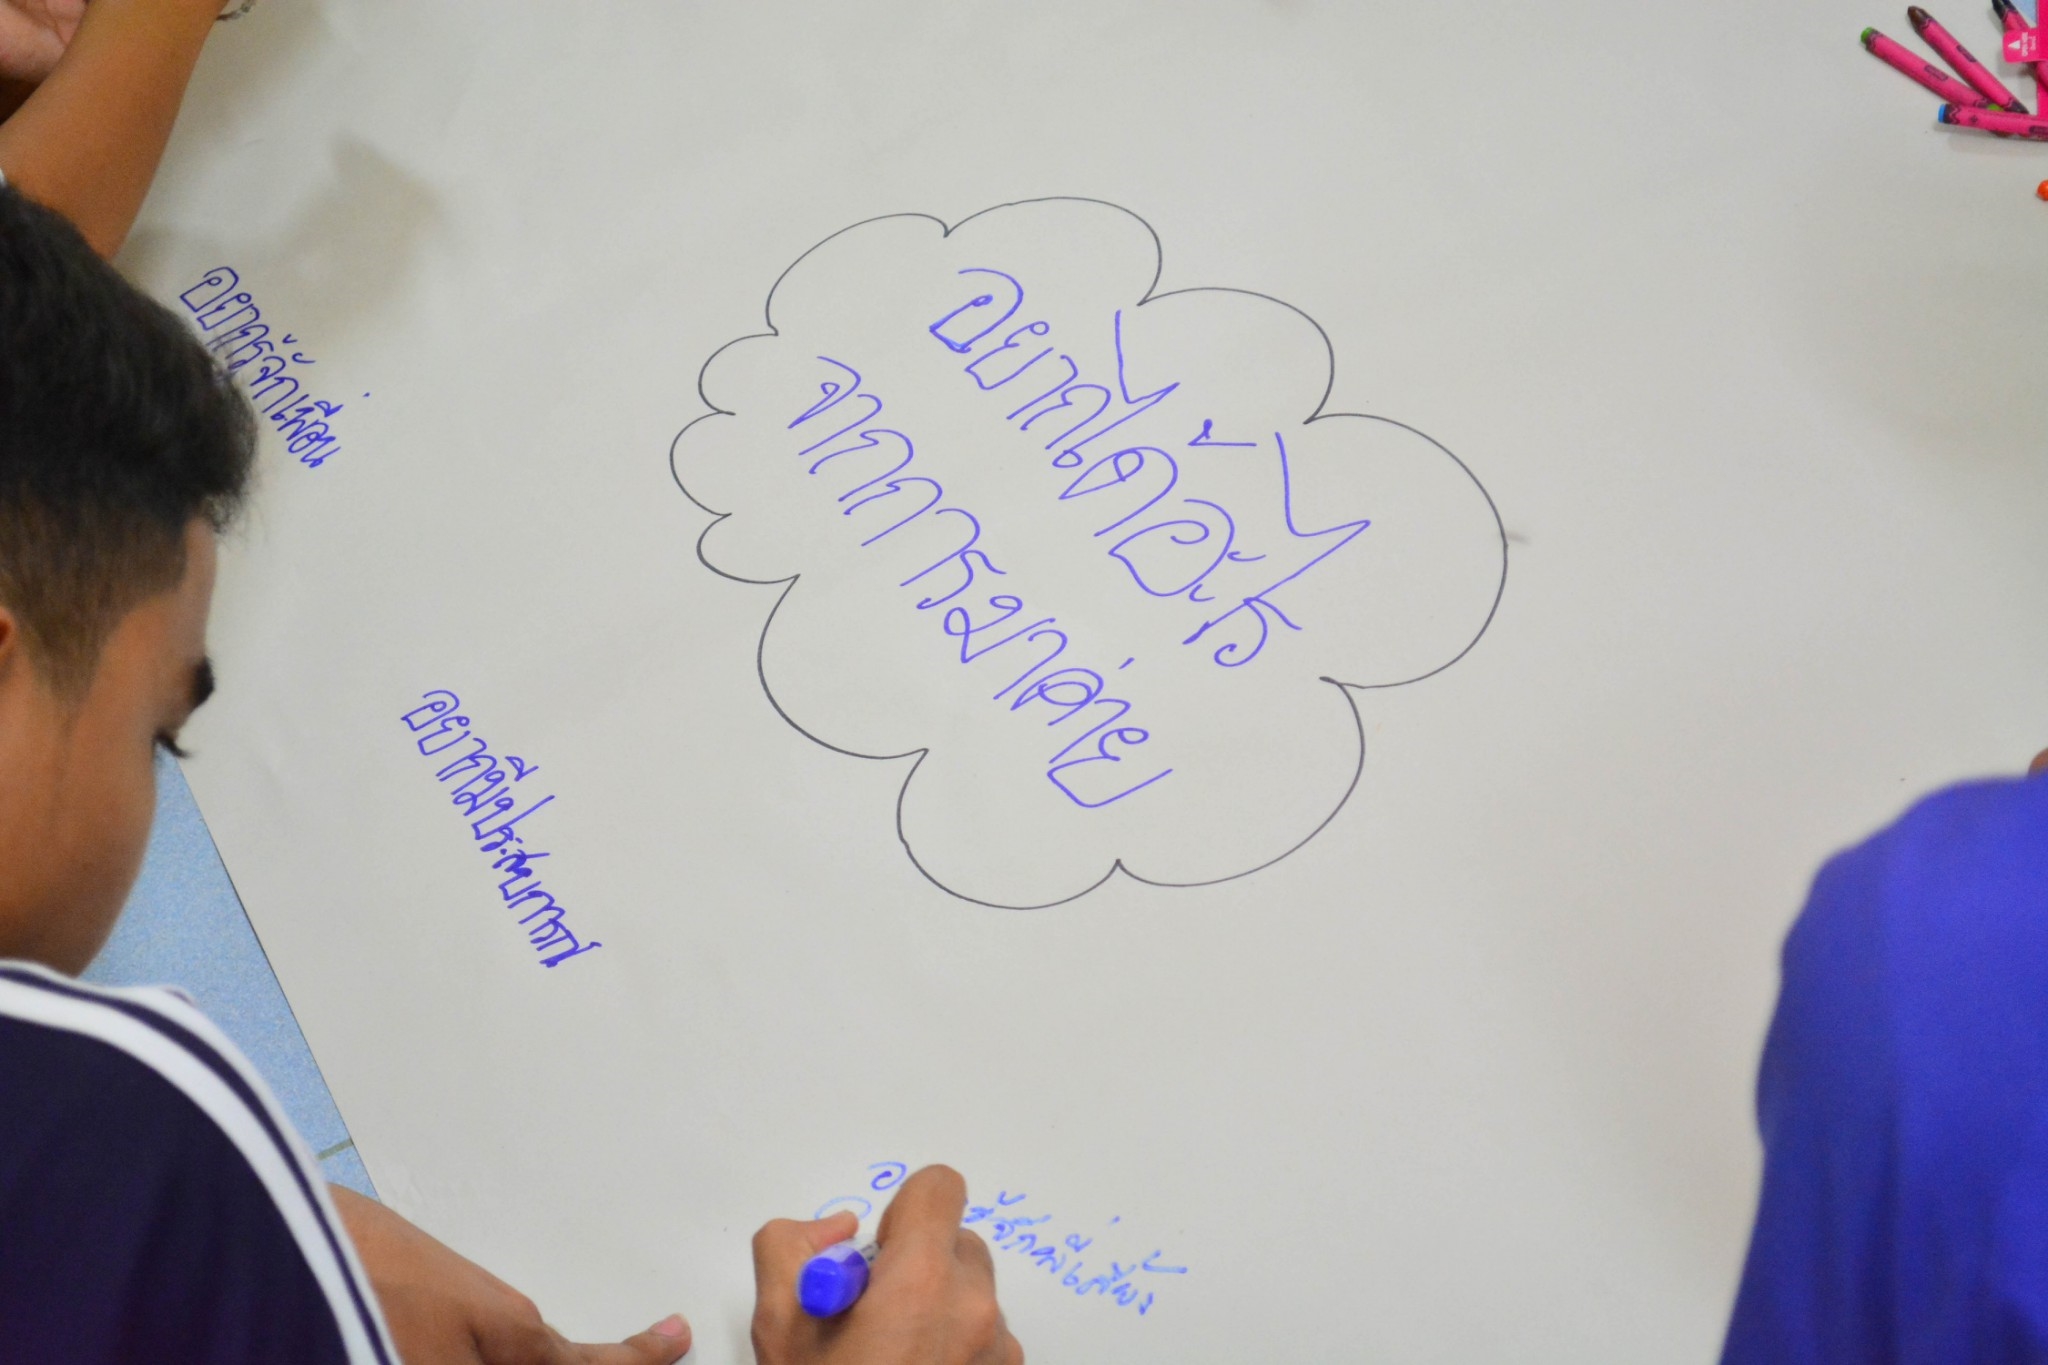 อยากได้อะไร
จากการมาค่าย
อยากรู้จักเพื่อน
อยากมีประสบการณ